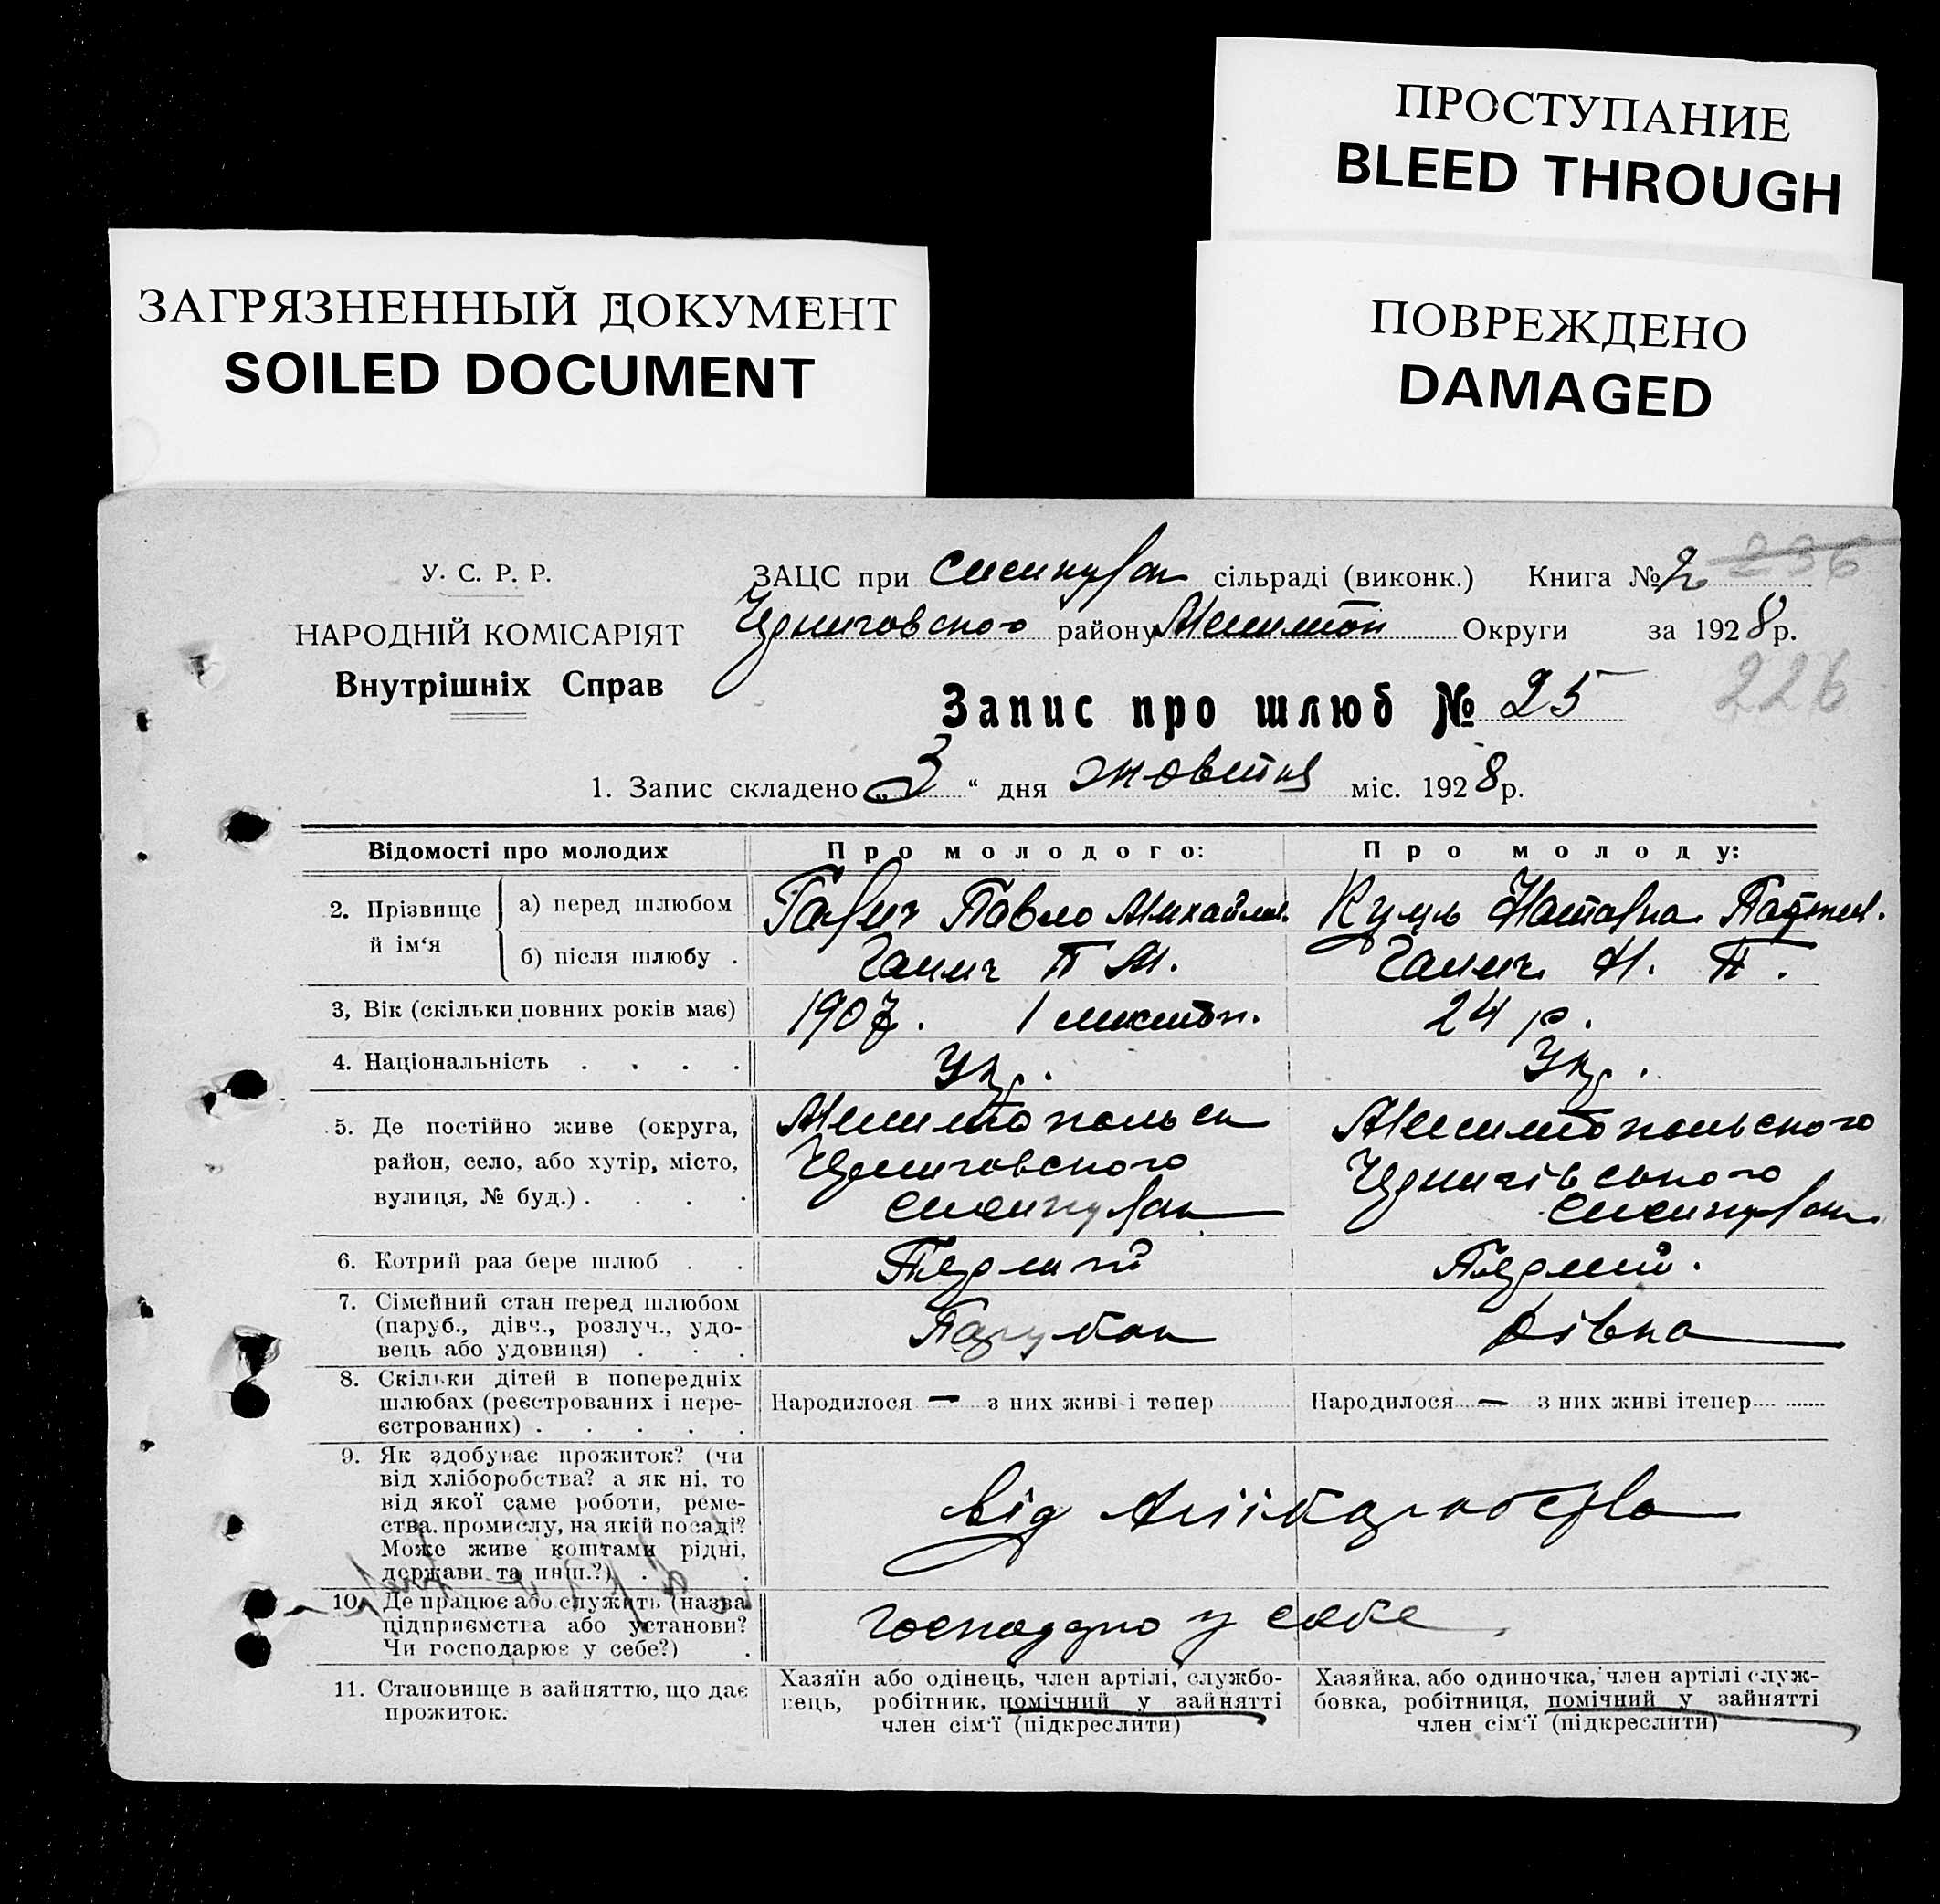 ПРОСТУПАНИЕ
BLEED THROUGH
ЗАГРЯЗНЕННЫЙ ДОКУМЕНТ
SOILED DOCUMENT
ПОВРЕЖДЕНО
DAMAGED
У. С. Р. Р.
НАРОДНІЙ КОМІСАРІЯТ
Внутрішніх Справ
ЗАЦС при сільраді (виконк.) Книга № 2 236
району Округи за 1928 р.
Запис про шлюб № 25 226
1. Запис складено „3“ дня жовтня міс. 1928 р.
Відомості про молодих Про молодого: Про молоду:
2. Прізвище й ім‘я
а) перед шлюбом Павло Михайлов.
б) після шлюбу . П М. Н. П.
3, Вік (скільки повних років має) 1907. 24 р.
4. Національність . . . . Укр. Укр.
5. Де постійно живе (округа, Мелитопольск Мелитопольского
район, село, або хутір, місто, Черниговского Чернигівського
вулиця, № буд.) . . . .
6. Котрий раз бере шлюб . . Первий Первий.
7. Сімейний стан перед шлюбом
(паруб., дівч., розлуч., удо-
вець або удовиця) . . . Парубок Дівка
8. Скільки дітей в попередніх
шлюбах (реєстрованих і нере-
єстрованих) . . . . .
Народилося — з них живі і тепер
Народилося — з них живі ітепер
9. Як здобуває прожиток? (чи
від хліборобства? а як ні, то
від якої саме роботи, реме-
ства, промислу, на якій посаді?
Може живе коштами рідні,
держави та инш.?) . .
від
10. Де працює або служить (назва
підприємства або установи?
Чи господарює у себе?) .
у себе
11. Становище в зайняттю, що дає
прожиток.
Хазяїн або одінець, член артілі, службо-
вець, робітник, помічний у зайнятті
член сім‘ї (підкреслити)
Хазяйка, або одиночка, член артілі служ-
бовка, робітниця, помічний у зайнятті
член сім‘ї (підкреслити)